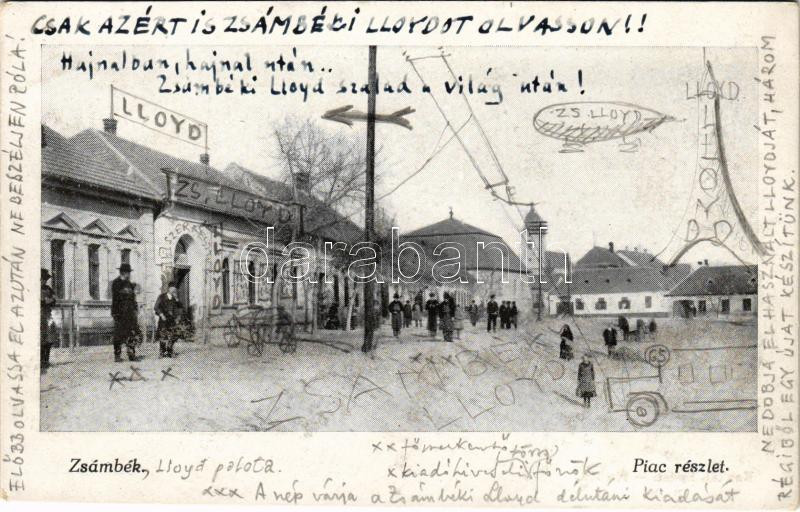 CSAK AZÉRT IS ZSÁMBÉKI LLOYDOT OLVASSON!!
Hajnalban, hajnal után..
Zsámbéki Lloyd szalad a világ után!
LLOYD
ZS. LLOYD
LLOYD
ZS. LLOYD
LLOYD
ZSÁMBÉKI
LLOYD
65
darabanth.com
ELŐBB OLVASSA EL AZUTÁN NE BESZÉLJEN RÓLA!
NEDOBJA EL HASZNÁLT LLOYDJÁT, HÁROM
RÉGIBŐL EGY ÚJAT KÉSZÍTÜNK.
Zsámbék., Lloyd palota.
Piac részlet.
xx
x kiadóhivatali
xxx A nép várja a Zsámbéki Lloyd délutáni kiadását